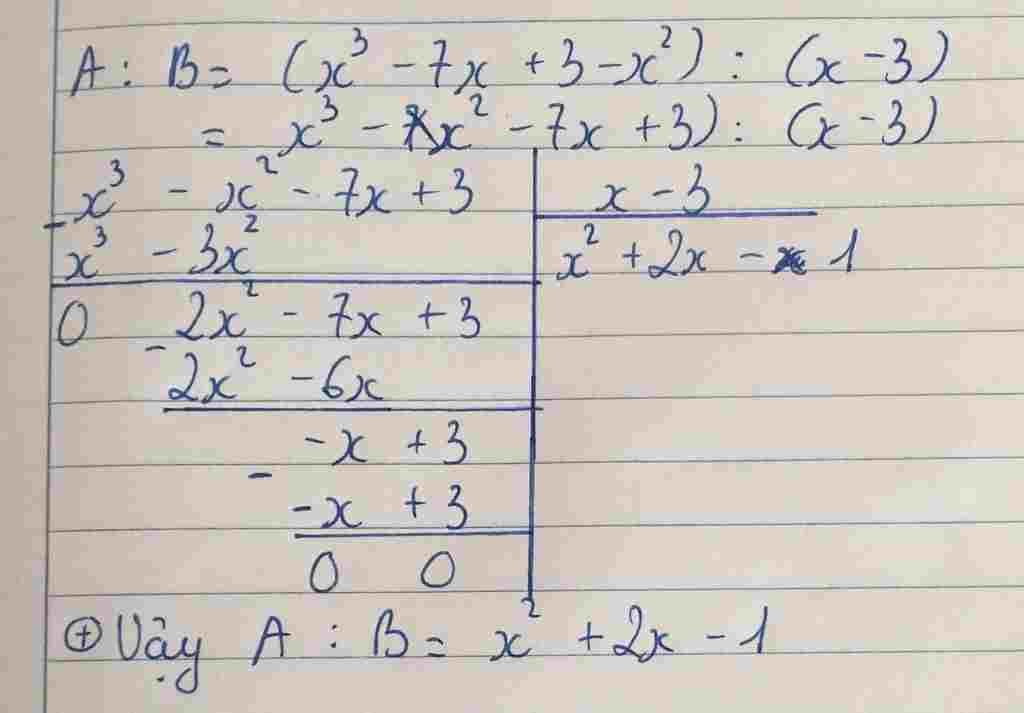 A : B = (x³ - 7x + 3 - x²) : (x - 3)
= x³ - x² - 7x + 3) : (x - 3)
- x³ - x² - 7x + 3 | x - 3
x³ - 3x² | x² + 2x - 1
0 2x² - 7x + 3
- 2x² - 6x
-x + 3
-
-x + 3
0 0
⊕ Vậy A : B = x² + 2x - 1